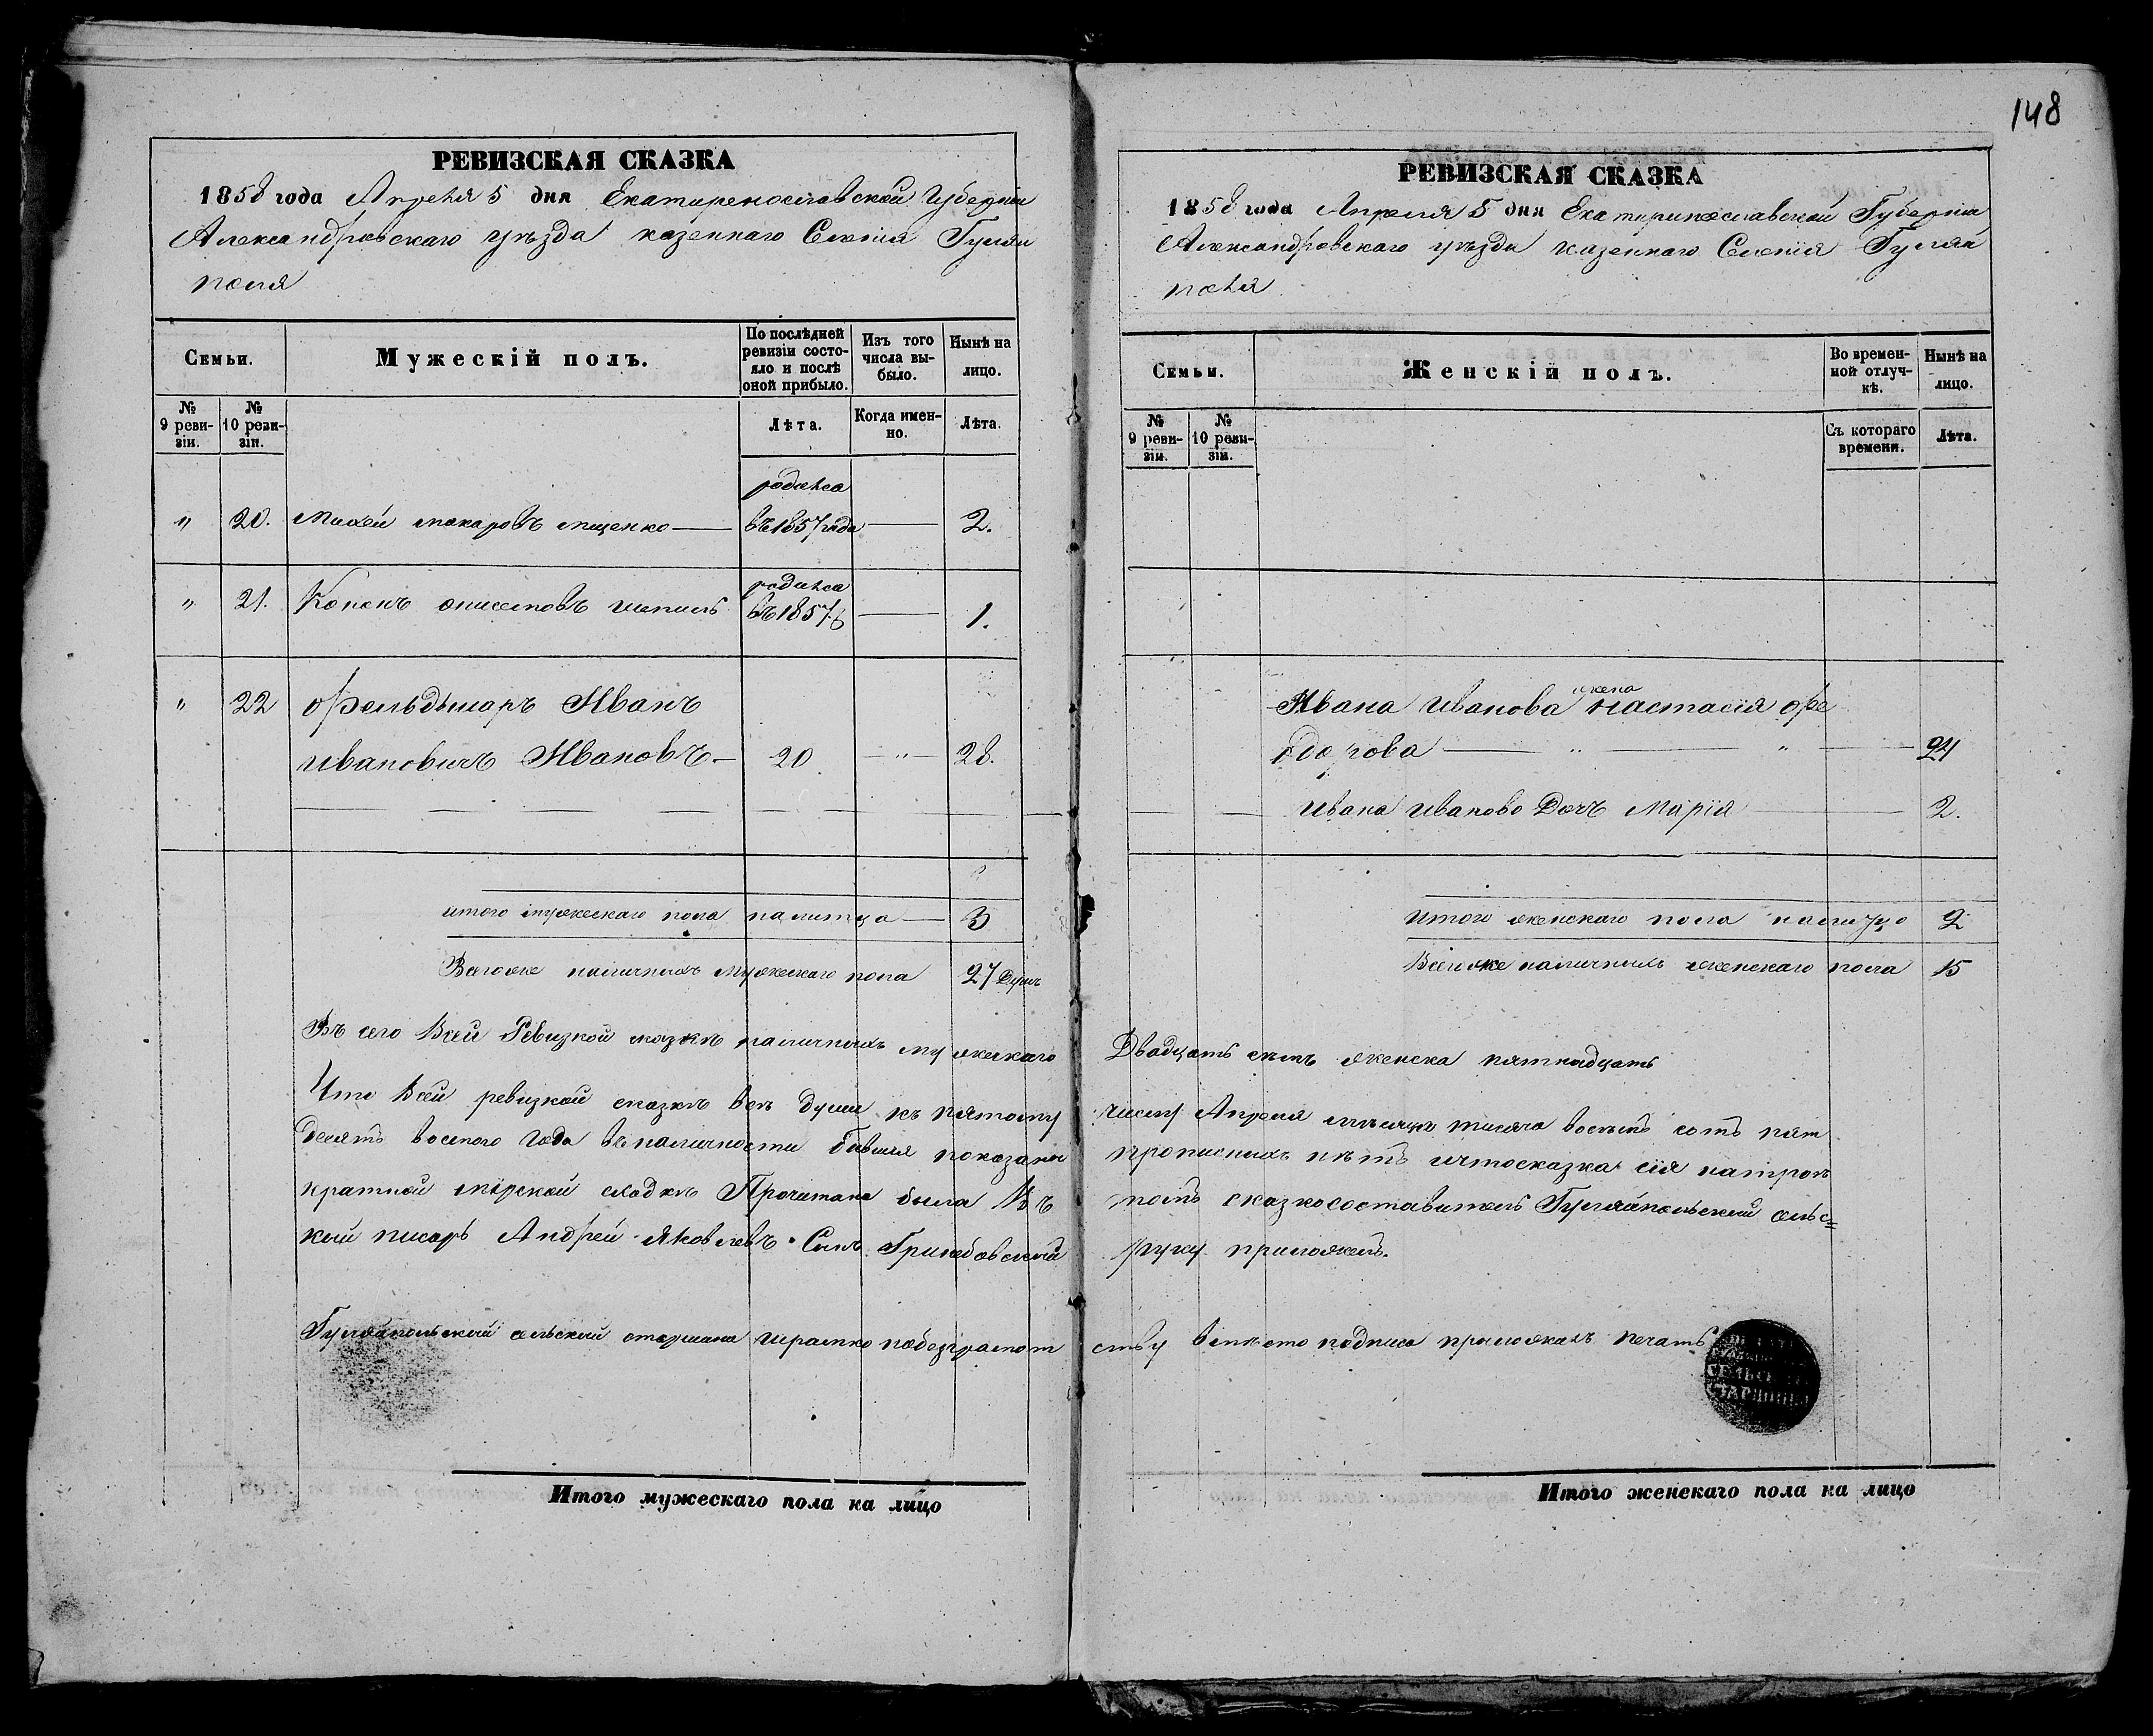 148
РЕВИЗСКАЯ СКАЗКА
1858 года Апреля 5 дня Екатиренославской Губернии
Александровскаго уѣзда казеннаго Селенія Гуляи
поля
Семьи.
Мужескій полъ.
По послѣдней ревизіи состояло и послѣ оной прибыло.
Изъ того числа выбыло.
Нынѣ на лицо.
№ 9 ревизіи.
№ 10 ревизіи.
Лѣта.
Когда именно.
Лѣта.
родился
" 20. Михей макаровъ ищенко въ 1857 года 2.
родился
" 21. Кононъ онисимовъ въ 1857 1.
" 22 Фельдшаръ Иванъ
ивановичъ Ивановъ 20 " 28.
итого мужескаго пола налицо 3
Всегоже наличныхъ мужескаго пола 27 Душъ
Въ сего Всей Ревизкой сказкѣ наличныхъ мужескаго
Что Всей ревизкой сказкѣ всѣ души къ пятому
десятъ восмого года вналичности бывшія показаны
кратной мірской сходкѣ Прочитана была Въ
кий писарь Андрей Яковлевъ Сынъ
Гуляйпольский сельский старшина Шрамко побезграмот
РЕВИЗСКАЯ СКАЗКА
1858 года Апреля 5 дня Екатиринославской Губерніи
Александровскаго уѣзда казеннаго Селенія Гуляи
поля
Семьи.
Женскій полъ.
Во временной отлучкѣ.
Нынѣ на лицо.
№ 9 ревизіи.
№ 10 ревизіи.
Съ котораго времени.
Лѣта.
жена
Ивана Иванова Настасія Фе
одорова " " 24
Ивана Иваново Дочъ Марія 2.
Итого женскаго пола налицо 2
Всегоже наличныхъ женскаго пола 15
Двадцать семъ женска пятнадцать
числу Апреля мѣсяца тисяча восемъ сотъ пят
прописныхъ нѣтъ ичтосказка сія натрох
тостъ сказкосоставителъ Гуляйпольский сельс=
руку приложилъ.
ству вмѣсто подписа приложилъ печать
СЕЛЬСК
СТАРШИН
Итого мужескаго пола на лицо
Итого женскаго пола на лицо